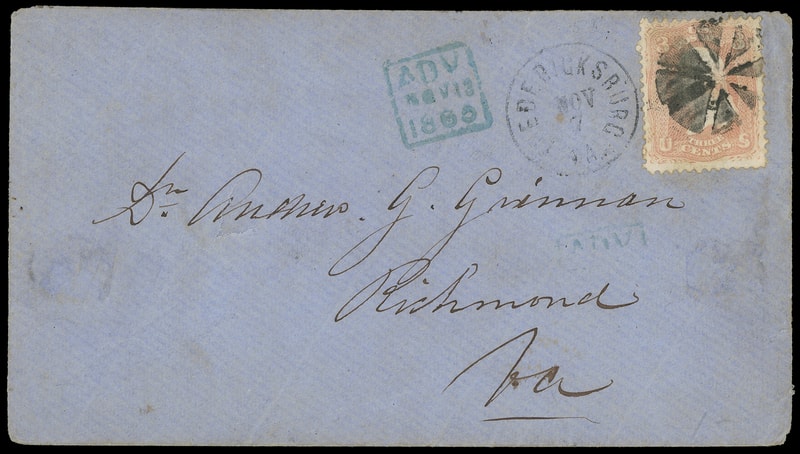 ADV
NOV 13
1868
FREDERICKSBURG
NOV
7
VA.
U S
THREE
CENTS
Dr Andrew. G. Grinnan
Richmond
Va